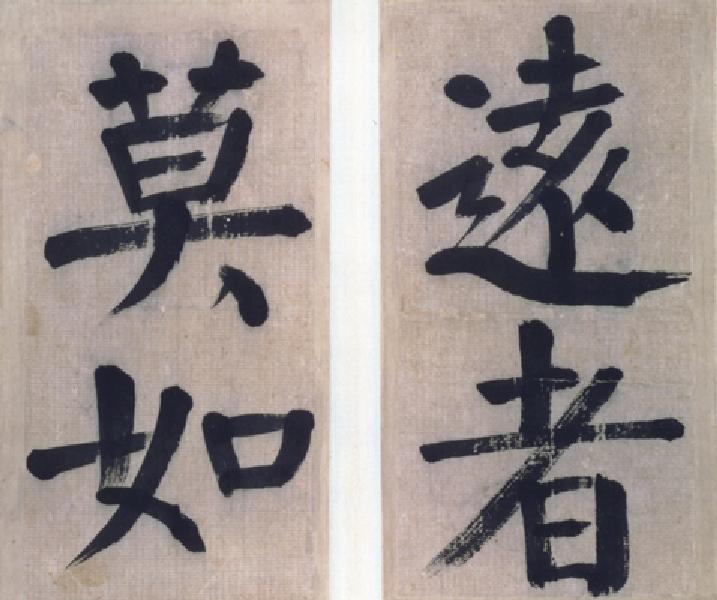 遠者
莫如